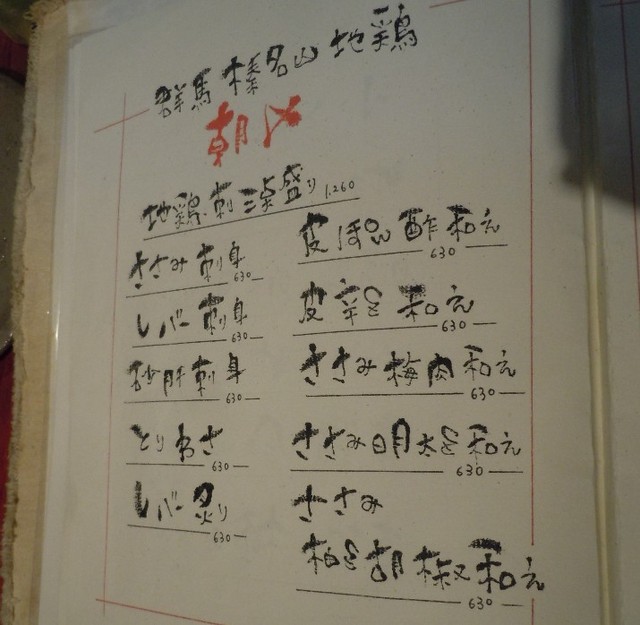 群馬 榛名山 地鶏
朝〆
地鶏刺三点盛り 1.260
ささみ刺身
630
レバー刺身
630
砂肝刺身
630
とりわさ
630
レバー炙り
630
皮ぽん酢和え
630
皮辛子和え
630
ささみ梅肉和え
630
ささみ明太子和え
630
ささみ
柚子胡椒和え
630